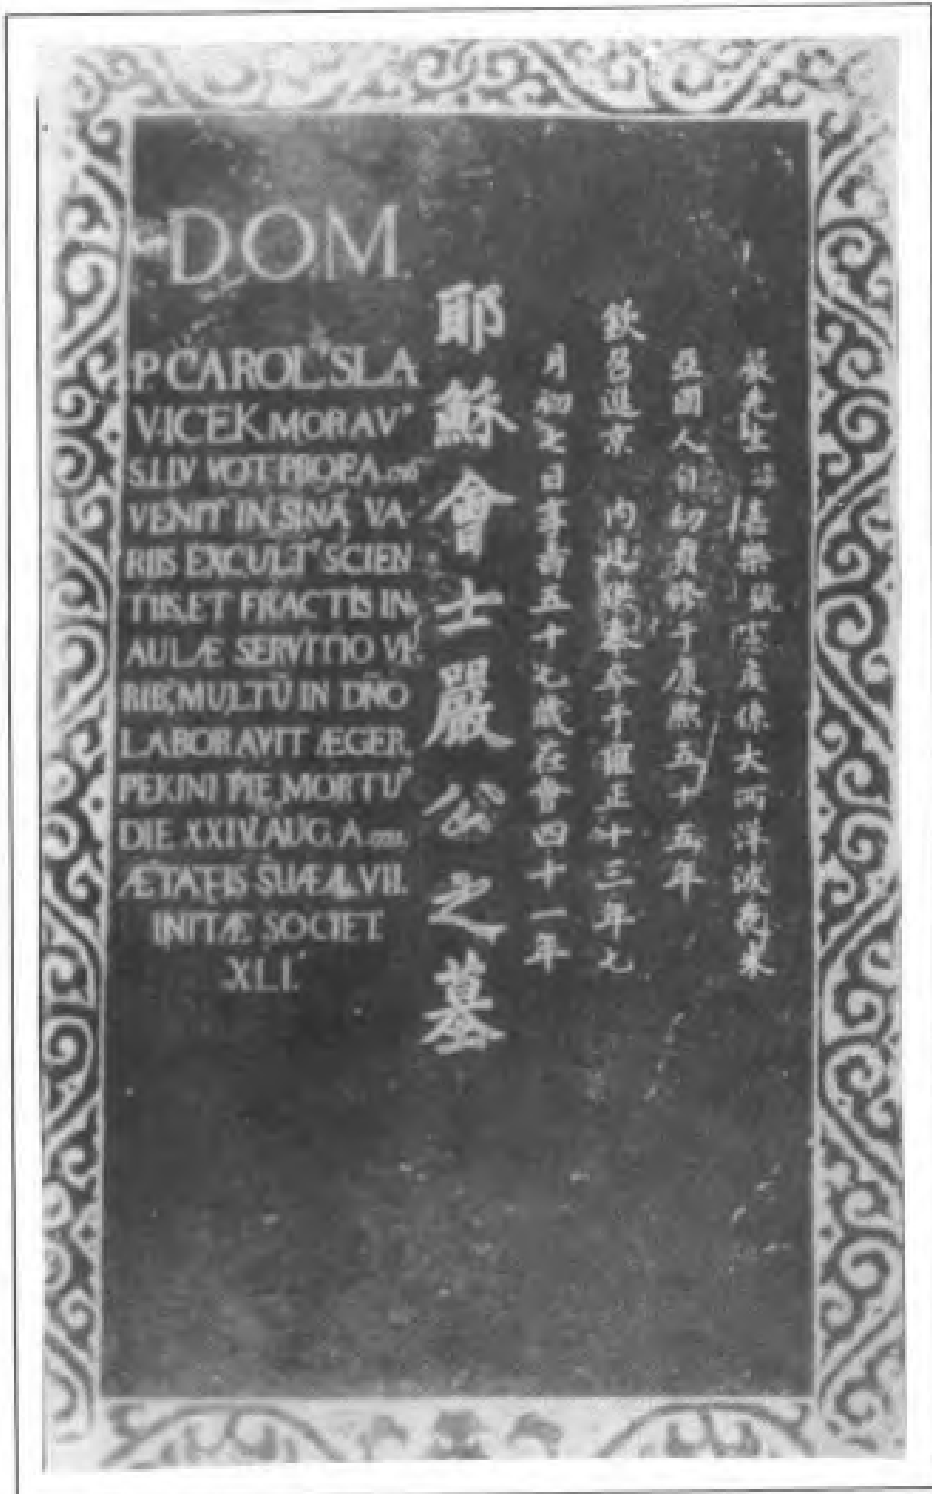 DOM
P CAROL' SLA
VICEK MORAV'
S.I. IV VOT. PROF. A.
VENIT IN SINĀ, VA-
RIIS EXCULT' SCIEN
TIIS, ET FRACTIS IN
AULÆ SERVITIO VI
RIB', MULTŪ IN DÑO
LABORAVIT ÆGER,
PEKINI PIE MORTU'
DIE XXIV. AUG. A.
ÆTATIS SUÆ VII.
INITÆ SOCIET.
XLI.
耶蘇會士嚴公之墓
嚴先生諱嘉樂號憲侯係大西洋波夜米
亞國人自幼貞修于康熙五十五年
欽召進京 內廷供奉卒于雍正十三年七
月初七日享壽五十七歲在會四十一年